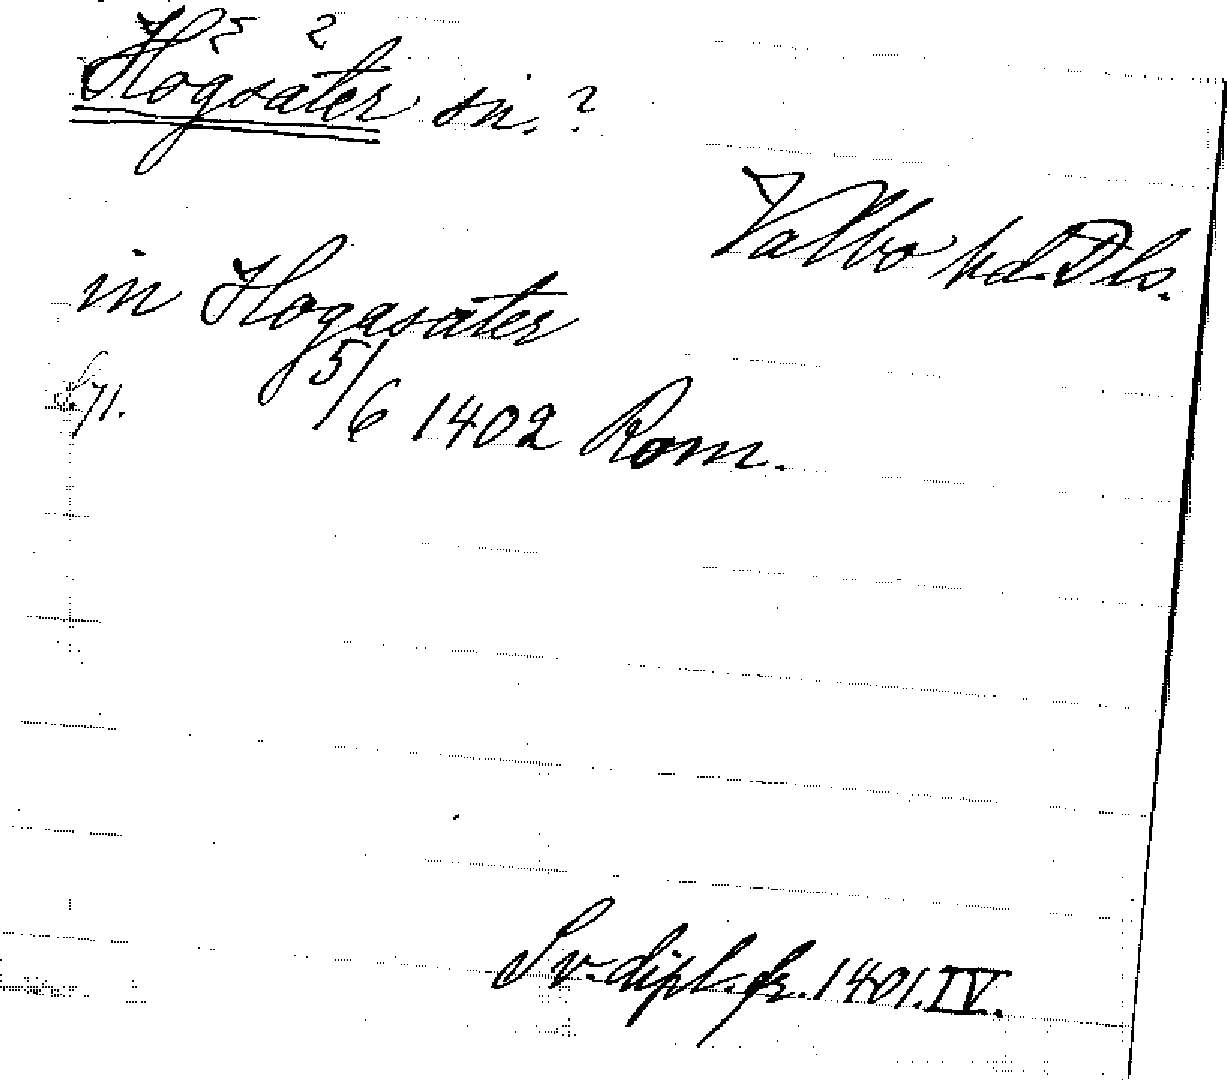 Högsäter sn.?
Valbo hd Dls.
in Hogasäter
s. 71.
5/6 1402 Rom.
Sv. dipl. fr. 1401. IV.